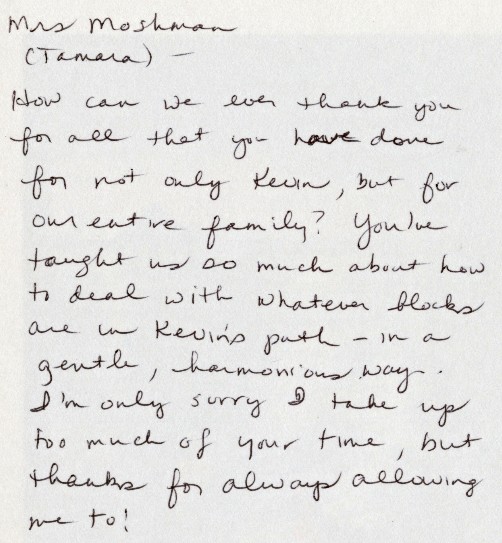 Mrs Moshman
(Tamara) —
How can we ever thank you
for all that you have done
for not only Kevin, but for
our entire family? You've
taught us so much about how
to deal with whatever blocks
are in Kevin's path – in a
gentle, harmonious way.
I'm only sorry I take up
too much of your time, but
thanks for always allowing
me to!